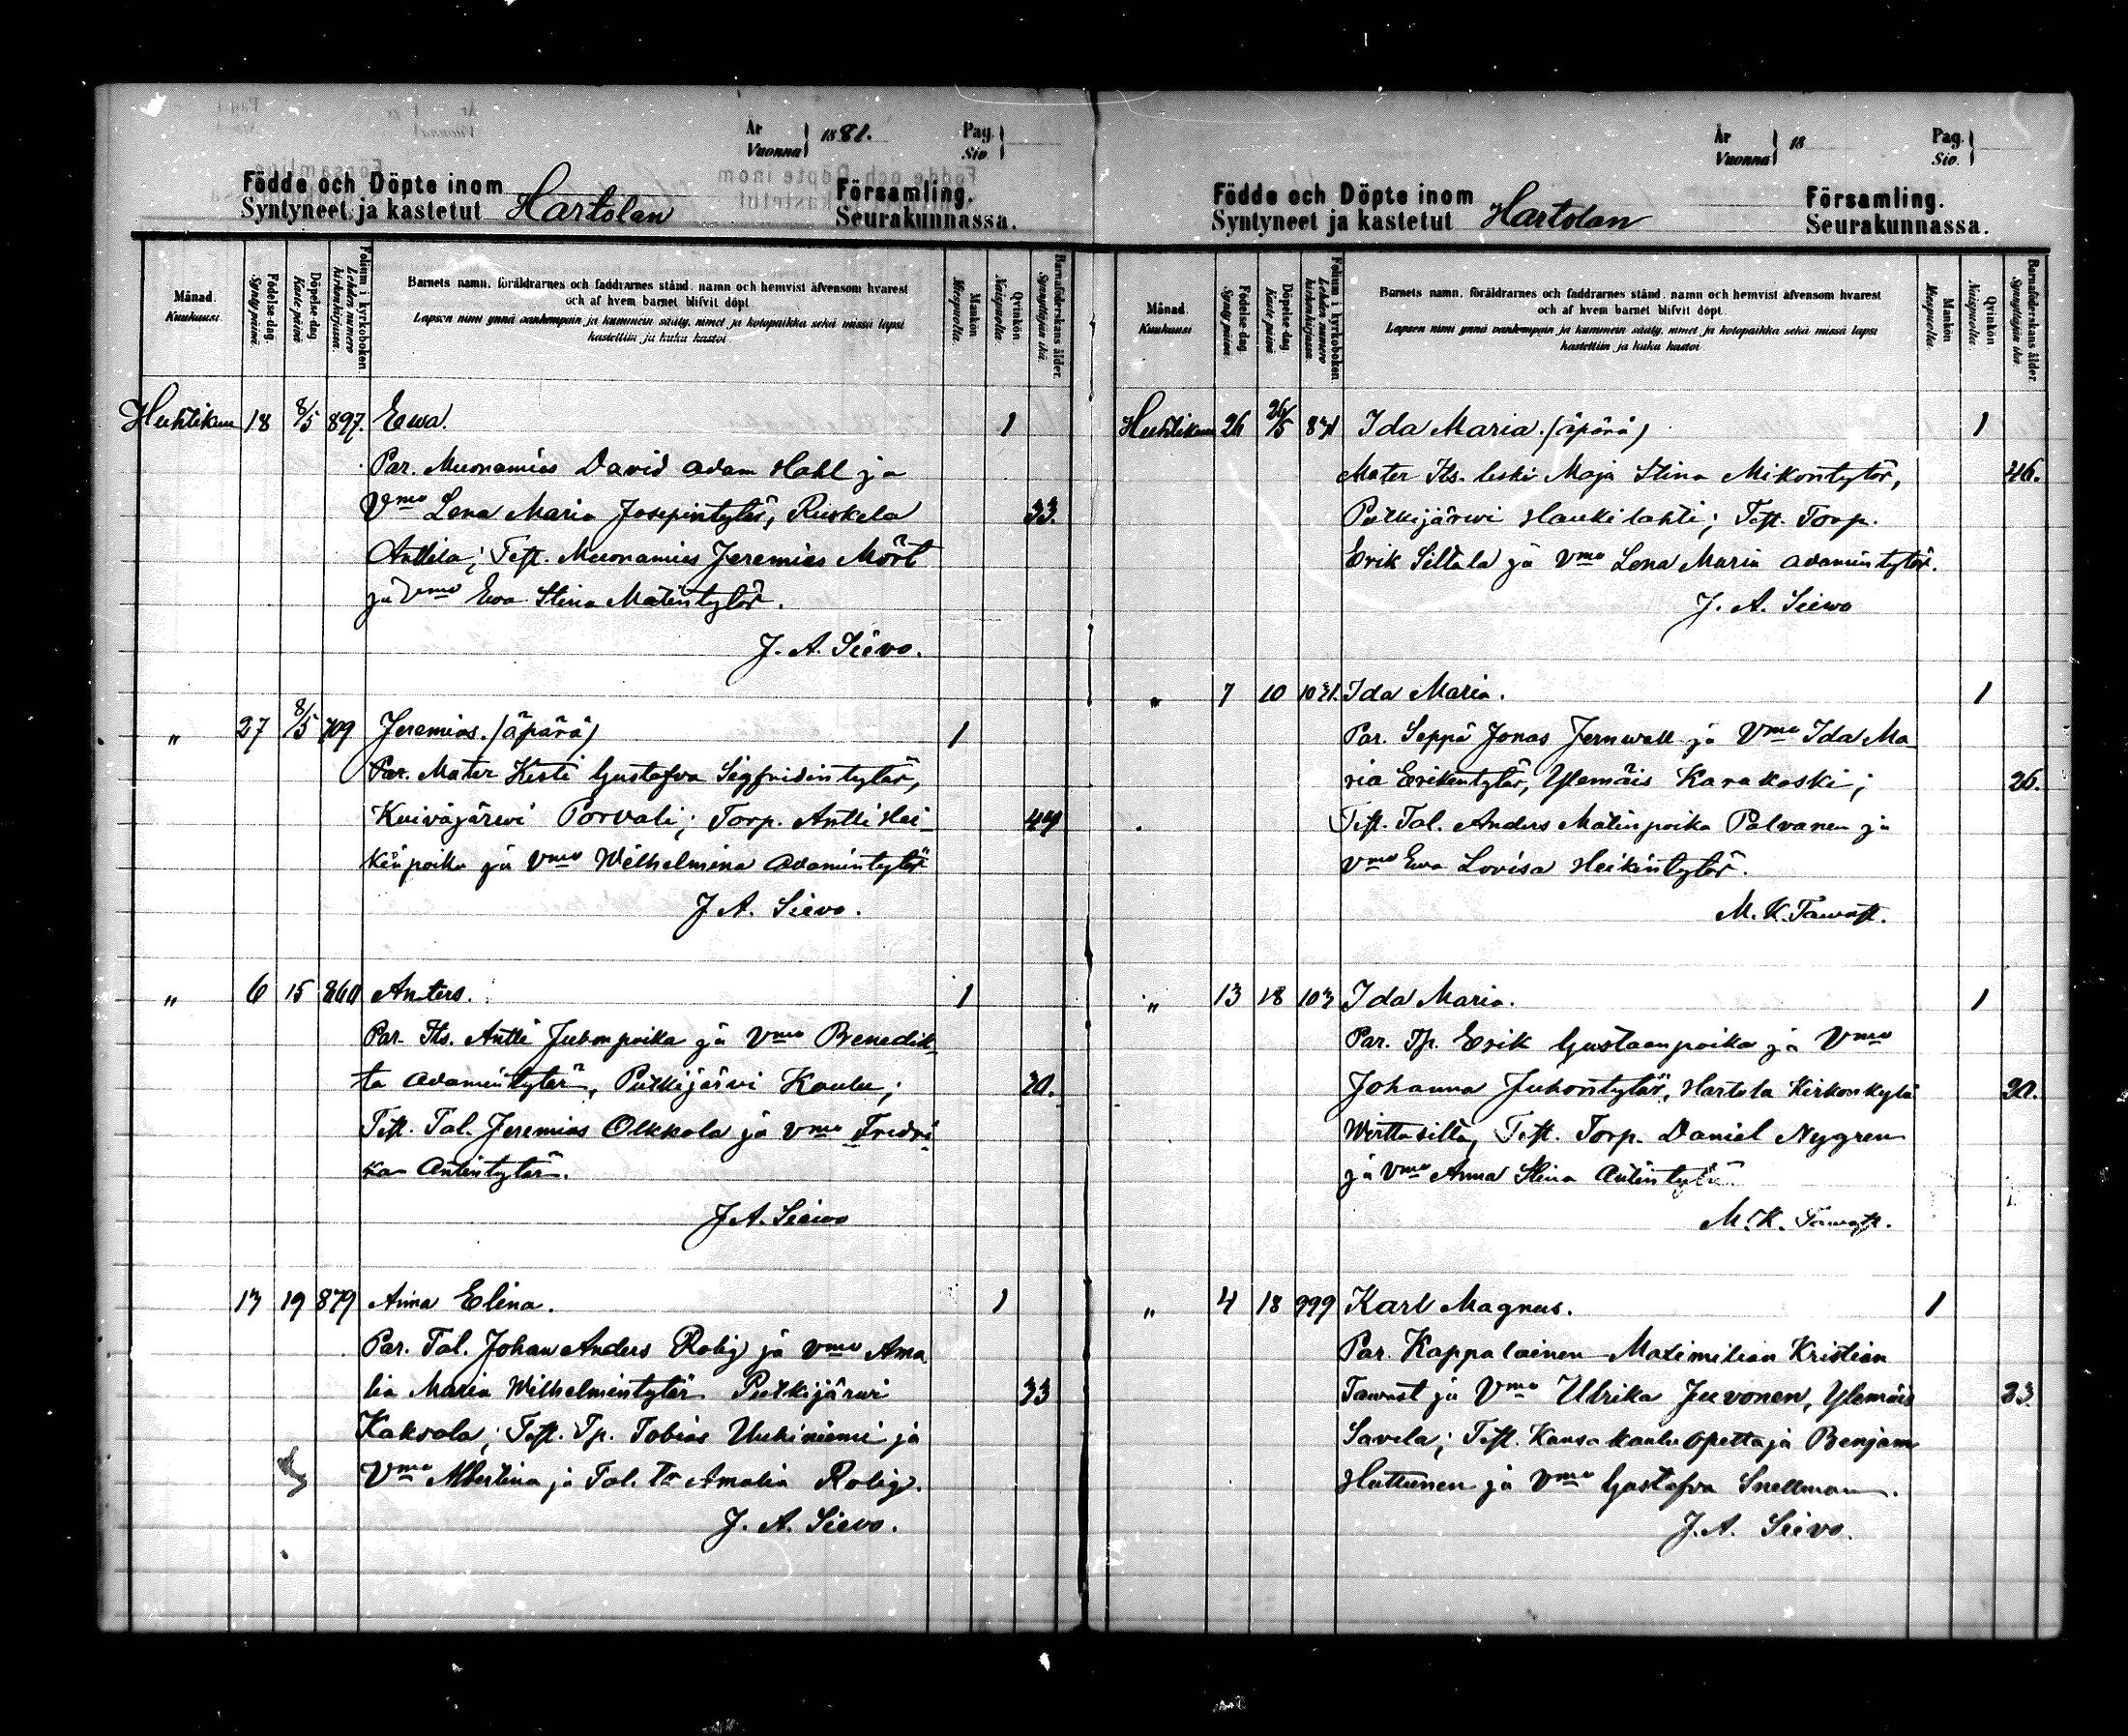 År
Vuonna 1881.
Pag.
Siv.
Födde och Döpte inom Församling.
Syntyneet ja kastetut Hartolan Seurakunnassa.
Månad. Kuukausi.
Födelse-dag. Synty päivä.
Döpelse-dag. Kaste päivä
Folium i kyrkoboken. Lehden numero kirkonkirjassa.
Barnets namn, föräldrarnes och faddrarnes stånd, namn och hemvist äfvensom hvarest
och af hvem barnet blifvit döpt.
Lapsen nimi ynnä vanhempain ja kummein sääty, nimet ja kotopaikka sekä missä lapsi
kastettiin ja kuka kastoi
Mankön Miespuolia.
Qvinkön Naispuolia.
Barnaföderskans ålder. Synnyttäjän ikä.
Huhtikuu 18 8/5 897. Ewa. 1
Par. Muonamies David Adam Hahl ja
Vmo Lena Maria Josepintytär, Ruskela 33.
Anttila; Test. Muonamies Jeremias Mört
ja Vmo Ewa Stina Matintytär.
J. A. Sievo.
" 27 8/5 709 Jeremias. (äpärä) 1
Par. Mater Kesti Gustafva Sigfridintytär,
Kuivajärwi Porvali; Torp. Antti Hei- 44
kinpoika ja Vmo Wilhelmina Adamintytär
J. A. Sievo.
" 6 15 860 Anters. 1
Par. Its. Antti Juhonpoika ja Vmo Benedik-
ta Adamintytär, Putkijärvi Koulu; 20.
Test. Tal. Jeremias Olkkola ja Vmo Fredri
ka Antintytär.
J. A. Sievo
13 19 879 Anna Elina. 1
Par. Tal. Johan Anders Rolig ja Vmo Ama
lia Maria Wilhelmintytär Putkijärwi 33
Kaksola; Test. Tp. Tobias Uuhiniemi ja
Vmo Albertina ja Tal. Tr Amalia Rolig.
J. A. Sievo.
År
Vuonna 18
Pag.
Siv.
Födde och Döpte inom Församling.
Syntyneet ja kastetut Hartolan Seurakunnassa.
Månad. Kuukausi
Födelse-dag. Synty päivä.
Döpelse-dag. Kaste päivä
Folium i kyrkoboken. Lehden numero kirkonkirjassa.
Barnets namn, föräldrarnes och faddrarnes stånd, namn och hemvist äfvensom hvarest
och af hvem barnet blifvit döpt.
Lapsen nimi ynnä vanhempain ja kummein sääty, nimet ja kotopaikka sekä missä lapsi
kastettiin ja kuka kastoi
Mankön Miespuolia.
Qvinkön Naispuolia.
Barnaföderskans ålder. Synnyttäjän ikä.
Huhtikuu 26 26/5 871 Ida Maria. (äpärä) 1
Mater Its. leski Maja Stina Mikontytär, 46.
Putkijärwi Haukilahti; Test. Torp.
Erik Siltala ja Vmo Lena Maria Adamintytär.
J. A. Siewo
" 7 10 1021. Ida Maria. 1
Par. Seppä Jonas Jernwall ja Vmo Ida Ma
ria Erikentytär, Ylemäis Karakoski; 26.
Test. Tal. Anders Matinpoika Palvanen ja
Vmo Ewa Lovisa Heikintytär.
M. K. Tawast.
" 13 18 103 Ida Maria. 1
Par. Tp. Erik Gustaanpoika ja Vmo
Johanna Juhontytär, Hartola Kirkonkylä 30.
Wirttasilta, Test. Torp. Daniel Nygren
ja Vmo Anna Stina Antintytär
M. K. Tawast.
" 4 18 999 Karl Magnus. 1
Par. Kappalainen Maximilian Kristian
Tawast ja Vmo Ulrika Juvonen, Ylemäis 23
Savela; Test. Kansakoulu opettaja Benjam
Huttunen ja Vmo Gustafva Snellman.
J. A. Sievo.